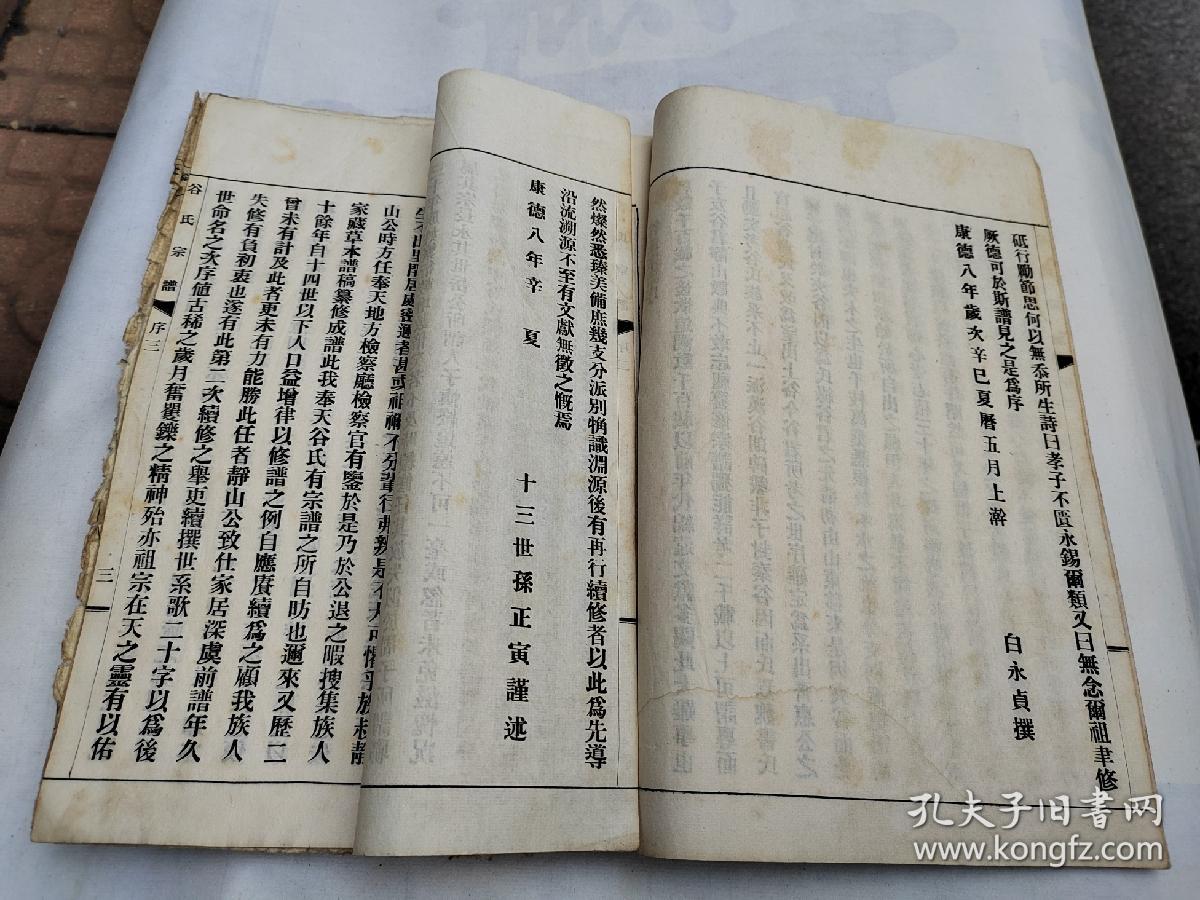 砥行勵節思何以無忝所生詩曰孝子不匱永錫爾類又曰無念爾祖聿修
厥德可於斯譜見之是為序
康德八年歲次辛巳夏曆五月上澣
白永貞撰
然燦然悉臻美備庶幾支分派別犓識淵源後有再行續修者以此為先導
沿流溯源不至有文獻無徵之慨焉
康德八年辛 夏
十三世孫正寅謹述
山公時方任奉天地方檢察廳檢察官有鑒於是乃於公退之暇搜集族人
家藏草本譜稿纂修成譜此我奉天谷氏有宗譜之所自昉也邇來又歷二
十餘年自十四世以下人口益增律以修譜之例自應賡續為之顧我族人
曾未有計及此者更未有力能勝此任者靜山公致仕家居深虞前譜年久
失修有負初衷也遂有此第二次續修之舉更續撰世系歌二十字以為後
世命名之次序値古稀之歲月奮矍鑠之精神殆亦祖宗在天之靈有以佑
谷氏宗譜 序三
三
孔夫子旧书网
www.kongfz.com